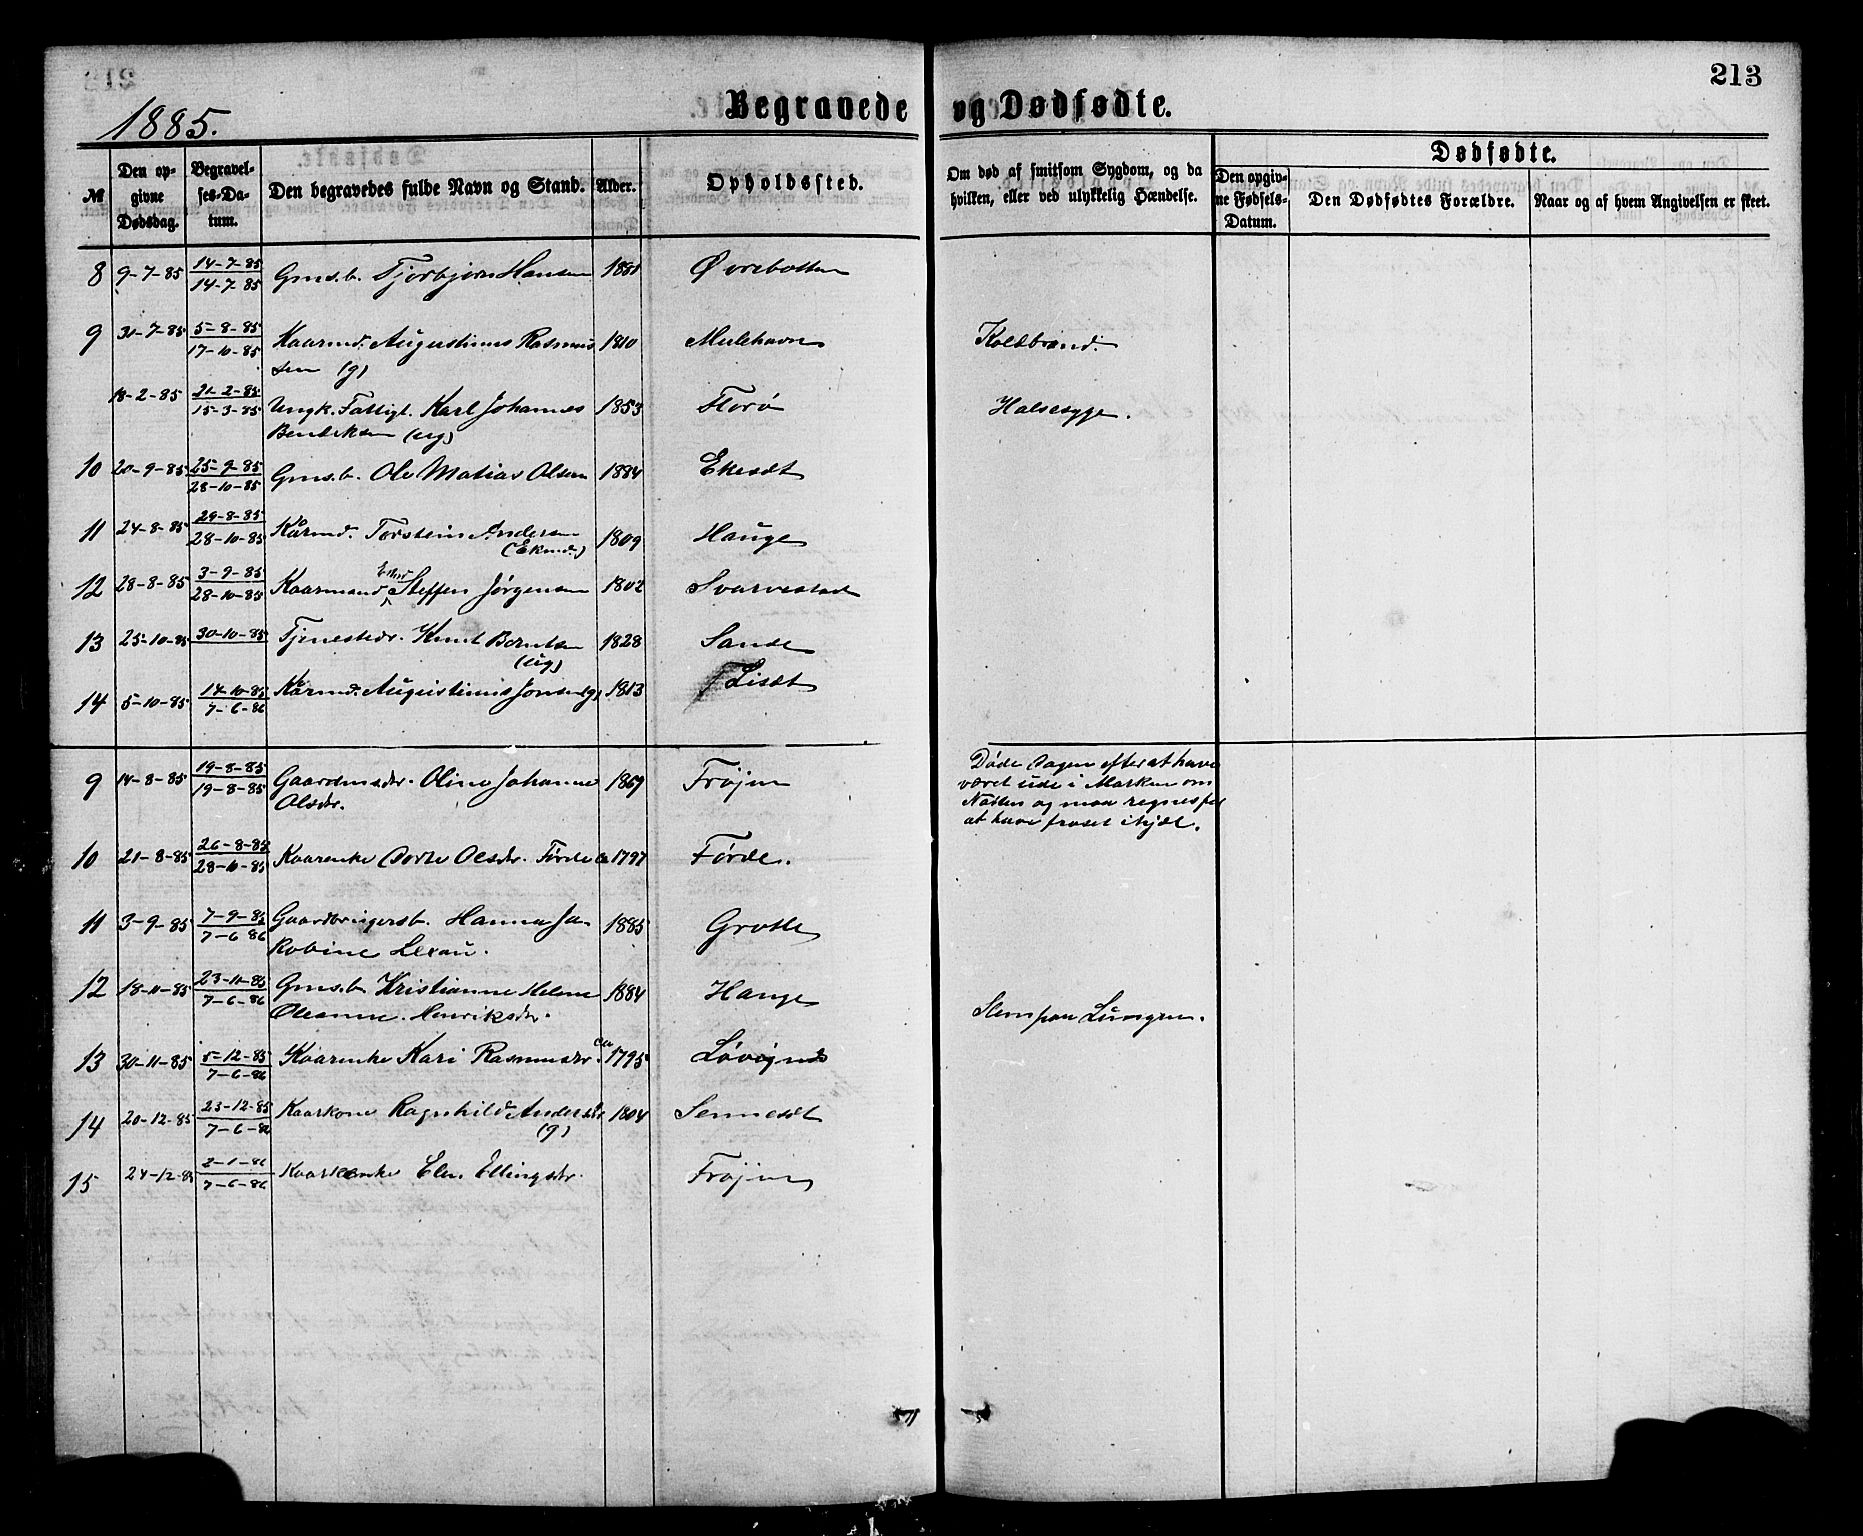 213
1885.
Begravede og Dødfødte.
№
Den opgivne Dødsdag.
Begravelses-Datum.
Den begravedes fulde Navn og Stand.
Alder.
Opholdssted.
Om død af smitsom Sygdom, og da hvilken, eller ved ulykkelig Hændelse.
Dødfødte.
Den opgivne Fødsels-Datum.
Den Dødfødtes Forældre.
Naar og af hvem Angivelsen er skeet.
8 9-7-85 14-7-85 14-7-85 Gms.b. Tjorbjørn Hansen 1881 Øvrebotten
9 31-7-85 5-8-85 17-10-85 Kaarmd. Augustinus Rasmus 1810 Mulehavn Koldbrand.
sen (g)
18-2-85 21-2-85 15-3-85 Ungk. Fattigl. Karl Johannes 1853 Florø Halsesyge.
Bendiksen (ug)
10 20-9-85 25-9-85 28-10-85 Gms.b. Ole Matias Olsen 1884 Ekesæt
11 24-8-85 29-8-85 28-10-85 Kårmd. Torstein Andersen 1809 Hauge
(Ekmd.)
12 28-8-85 3-9-85 28-10-85 Kaarmand Ekmd Steffen Jørgensen 1802 Svarvestad
13 25-10-85 30-10-85 Tjenestedr. Knut Berntsen 1828 Sande
(ug)
14 5-10-85 14-10-85 7-6-86 Kårmd. Augustinus Jonsen (g) 1813 Lisæt
9 14-8-85 19-8-85 19-8-85 Gaardmsdtr. Oline Johanne 1869 Frøjen
Olsdtr.
Døde Dagen efter at have
været ude i Marken om
Natten og maa regnes for
at have froset ihjæl.
10 21-8-85 26-8-85 28-10-85 Kaarenke Dorte Olsdtr. Førde Ca 1797 Førde.
11 3-9-85 7-9-85 7-6-86 Gaardbrugersb. Hanna Ja- 1885 Grotle
kobine Lexau.
12 18-11-85 23-11-85 7-6-86 Gms.b. Kristianne Helene 1884 Hauge
Oleanne Henriksdtr. Slem paa Lungen.
13 30-11-85 5-12-85 7-6-86 Kaarenke Kari Rasmusdtr Ca 1795 Løvøjnæs
14 20-12-85 23-12-85 7-6-86 Kaarkone Ragnhild Andersdtr 1804 Sennesæt
(g)
15 24-12-85 2-1-86 7-6-86 Kaarkenke Elen Ellingsdtr. Frøjen